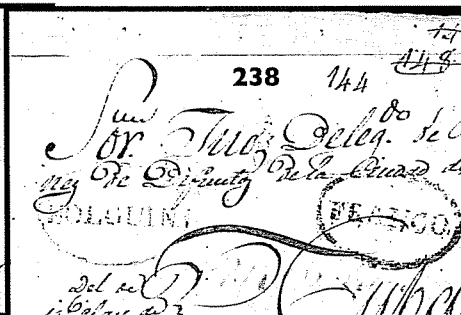 148
238 144
Sor. Juez Deleg.do de
de Difuntos de la Ciudad de
HOLGUIN FRANCO
Cuba
Del se